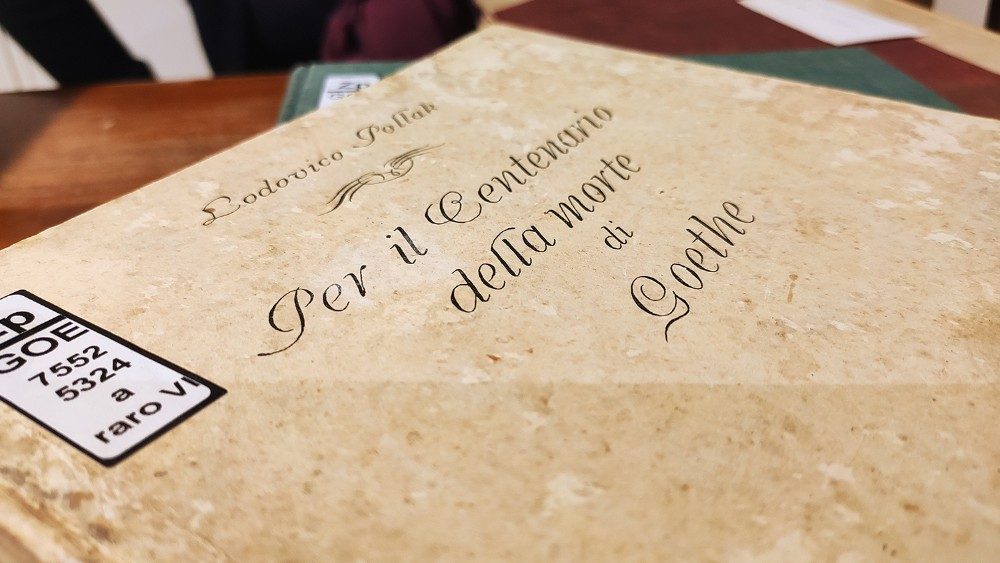 Lodovico Pollak
Per il Centenario
della morte
di
Goethe
GOE
7552
5324
a
raro VI